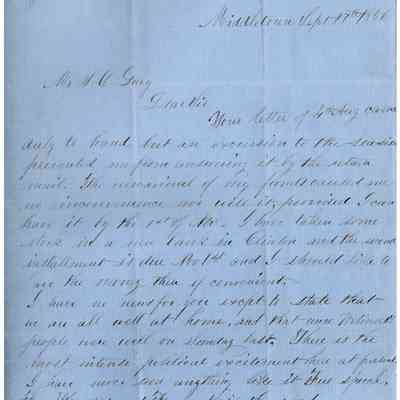 Middletown Sept 17th 1866
Mr
Dear Sir
Your letter of 4th Aug came
duly to hand but an excursion to the seaside
prevented me from answering it by the return
mail. The of my funds caused me
no inconvenience nor will it, provided I can
have it by the 1st of Nov. I have taken some
stock in a new bank in Clinton and the second
installment is due Nov 1st and I should like to
the money then if convenient.
I have no news for you except to state that
we are all well at home, and that
people were well on Sunday last. There is the
most intense political excitement here at present
I have never seen anything like it